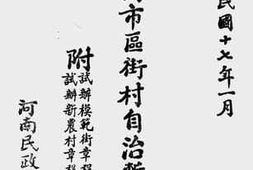 民國十七年一月
市區街村自治暫
附
試辦模範街章程
試辦新農村章程
河南民政